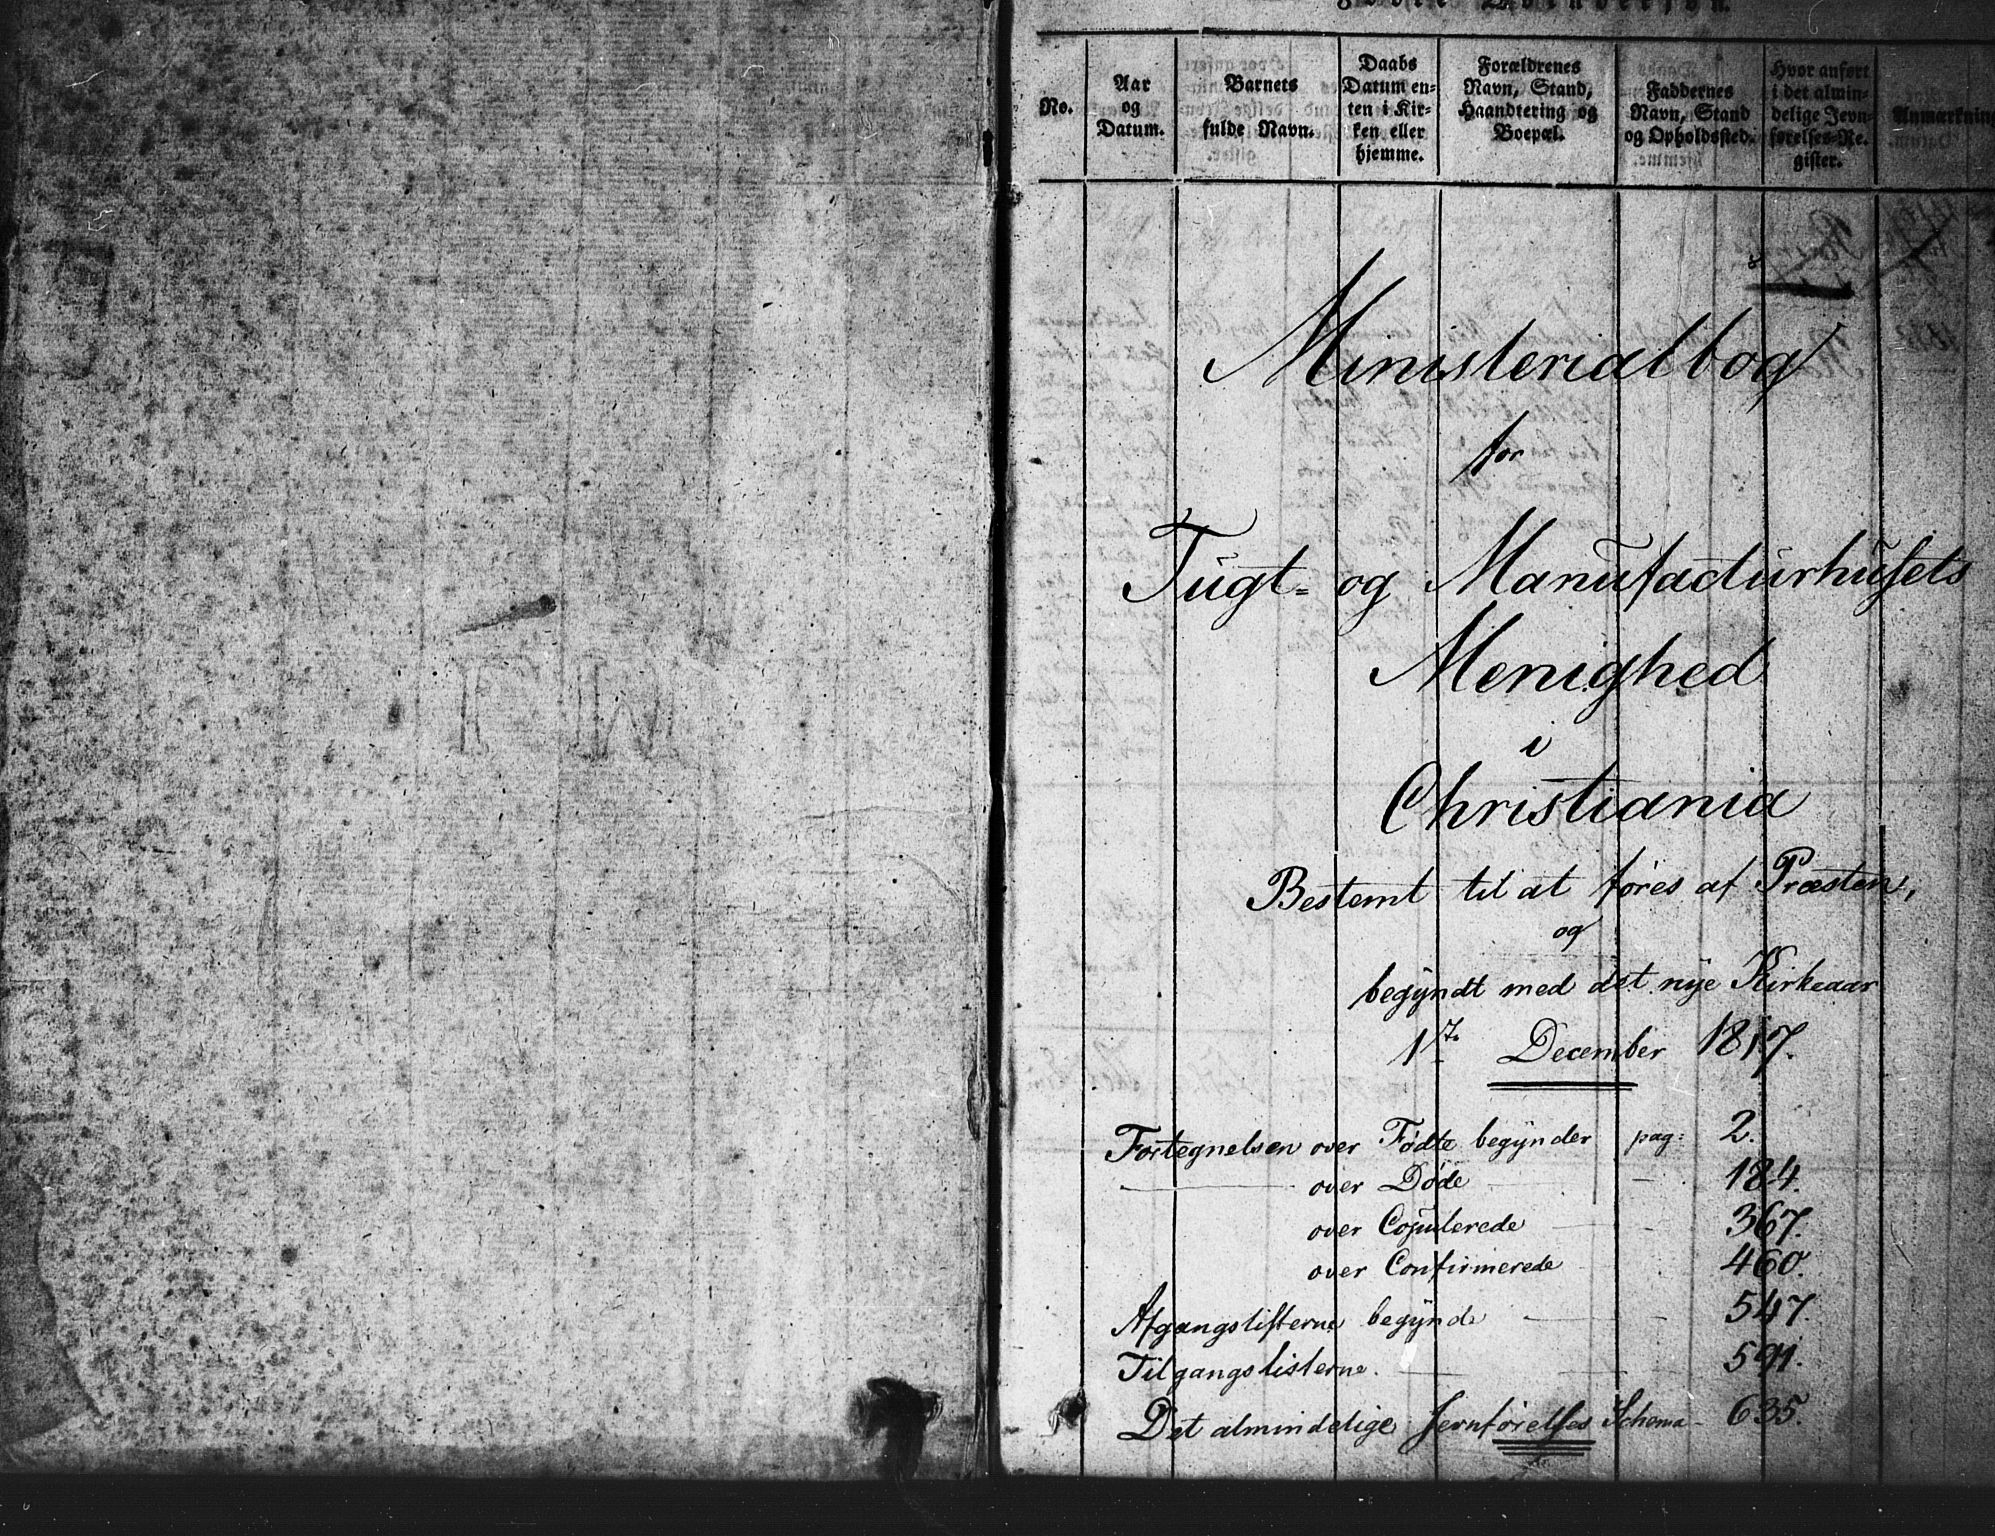 No.
Aar
og
Datum.
Barnets
fulde Navn.
Daabs
Datum en-
ten i Kir-
ken eller
hjemme.
Forældrenes
Navn, Stand,
Haandtering og
Boepæl.
Faddernes
Navn, Stand
og Opholdssted.
Hvor anført
i det almin-
delige Jevn-
førelses-Re-
gister.
Anmærkning
Ministerialbog
for
Tugt- og Manufacturhusets
Menighed
i
Christiania
Bestemt til at føres af Præsten,
og
begyndt med det nye Kirkeaar
1 December 1817.
Fortegnelsen over Fødte begynder pag: 2.
over Døde 184.
over Copulerede 367.
over Confirmerede 460.
Afgangslisterne begynde 547.
Tilgangslisterne. 591.
Det almindelige Jevnførelses Schema 635.